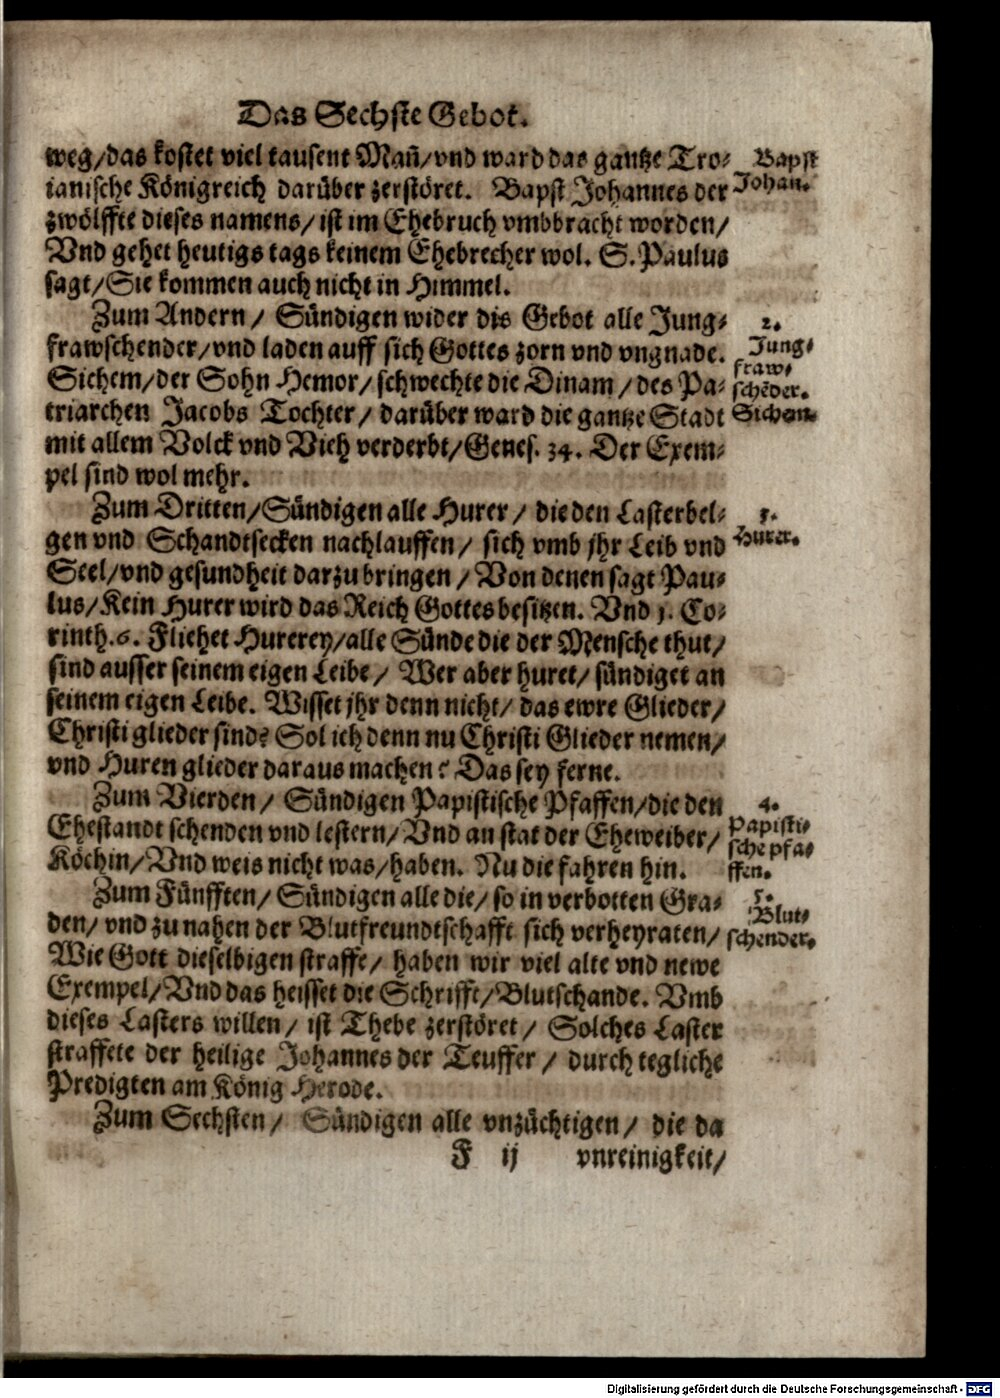 Das Sechste Gebot.
weg/das kostet viel tausent Mañ/vnd ward das gantze Tro-
ianische Königreich darüber zerstöret. Bapst Johannes der
zwölffte dieses namens/ ist im Ehebruch vmbbracht worden/
Vnd gehet heutigs tags keinem Ehebrecher wol. S. Paulus
sagt/Sie kommen auch nicht in Himmel.
Bapst
Johan.
Zum Andern / Sündigen wider dis Gebot alle Jung-
frawschender/vnd laden auff sich Gottes zorn vnd vngnade.
Sichem/der Sohn Hemor/ schwechte die Dinam / des Pa-
triarchen Jacobs Tochter/ darüber ward die gantze Stadt
mit allem Volck vnd Vieh verderbt/Genes. 34. Der Exem-
pel sind wol mehr.
2.
Jung-
fraw-
schēder.
Sichem.
Zum Dritten/Sündigen alle Hurer/ die den Lasterbel-
gen vnd Schandtsecken nachlauffen/ sich vmb jhr Leib vnd
Seel/vnd gesundheit darzu bringen / Von denen sagt Pau-
lus/Kein Hurer wird das Reich Gottes besitzen. Vnd 1. Co-
rinth.6. Fliehet Hurerey/alle Sünde die der Mensche thut/
sind ausser seinem eigen Leibe/ Wer aber huret/ sündiget an
seinem eigen Leibe. Wisset jhr denn nicht/ das ewre Glieder/
Christi glieder sind? Sol ich denn nu Christi Glieder nemen/
vnd Huren glieder daraus machen? Das sey ferne.
3.
Hurer.
Zum Vierden/ Sündigen Papistische Pfaffen/die den
Ehestandt schenden vnd lestern/Vnd an stat der Eheweiber/
Köchin/Vnd weis nicht was/haben. Nu die fahren hin.
4.
Papisti-
sche pfa-
ffen.
Zum Fünfften/ Sündigen alle die/ so in verbotten Gra-
den/ vnd zu nahen der Blutfreundtschafft sich verheyraten/
Wie Gott dieselbigen straffe/ haben wir viel alte vnd newe
Exempel/Vnd das heisset die Schrifft/Blutschande. Vmb
dieses Lasters willen/ ist Thebe zerstöret/ Solches Laster
straffete der heilige Johannes der Teuffer/ durch tegliche
Predigten am König Herode.
5.
Blut-
schender.
Zum Sechsten/ Sündigen alle vnzüchtigen/ die da
F ij vnreinigkeit/
Digitalisierung gefördert durch die Deutsche Forschungsgemeinschaft - DFG